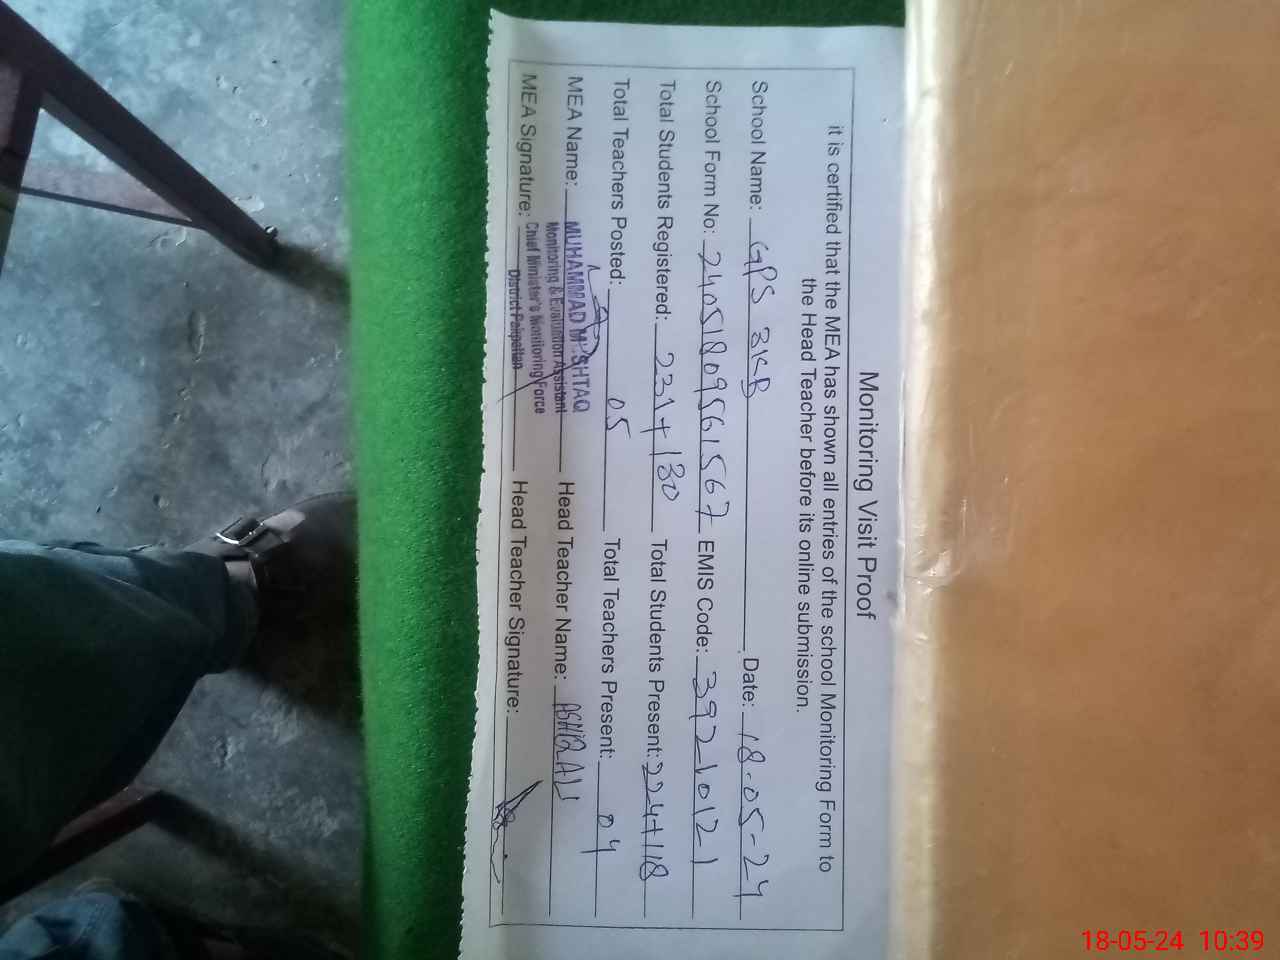 Monitoring Visit Proof
it is certified that the MEA has shown all entries of the school Monitoring Form to
the Head Teacher before its online submission.
School Name: GPS 3KB Date: 18-05-24
School Form No: 24051809561567 EMIS Code: 39210121
Total Students Registered: 231+130 Total Students Present: 224+118
Total Teachers Posted: 05 Total Teachers Present: 04
MEA Name: MUHAMMAD MUSHTAQ Head Teacher Name: ASHIQ ALI
Monitoring & Evaluation Assistant
MEA Signature: Chief Minister's Monitoring Force Head Teacher Signature:
District Pakpattan
18-05-24 10:39